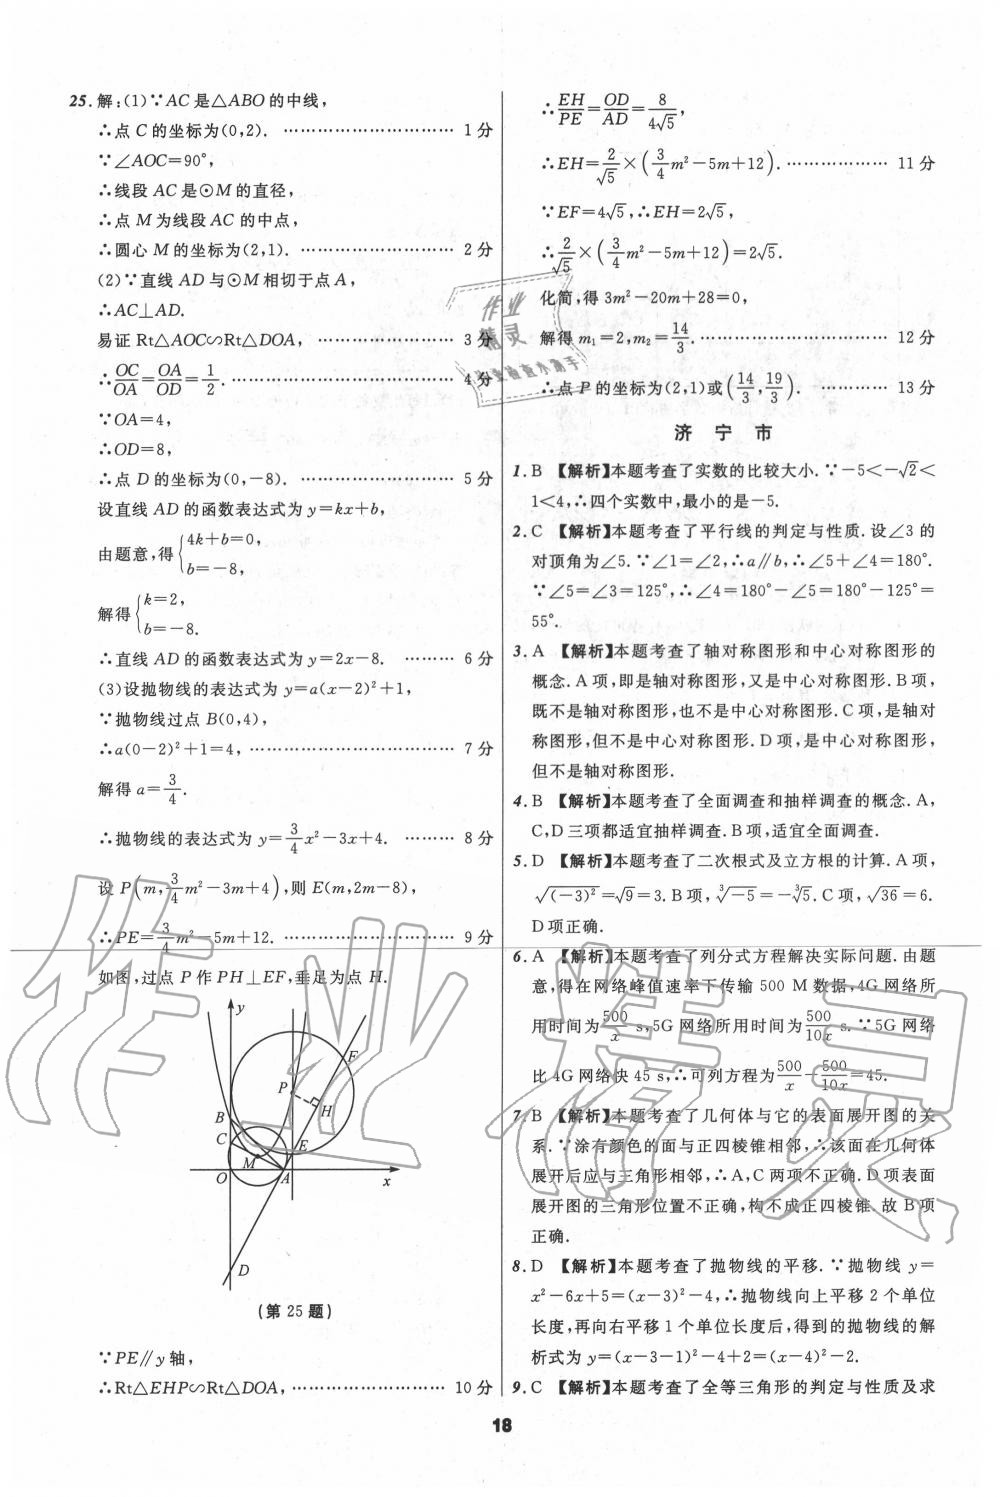 25. 解:(1)∵AC是△ABO的中线,
∴点C的坐标为(0,2). …………………………… 1分
∵∠AOC=90°,
∴线段AC是⊙M的直径,
∴点M为线段AC的中点,
∴圆心M的坐标为(2,1). ………………………… 2分
(2)∵直线AD与⊙M相切于点A,
∴AC⊥AD.
易证Rt△AOC∽Rt△DOA, …………………… 3分
∴OC/OA=OA/OD=1/2. …………………………………… 4分
∵OA=4,
∴OD=8,
∴点D的坐标为(0,-8). ………………………… 5分
设直线AD的函数表达式为y=kx+b,
由题意,得{4k+b=0, b=-8,
解得{k=2, b=-8.
∴直线AD的函数表达式为y=2x-8. ……… 6分
(3)设抛物线的表达式为y=a(x-2)²+1,
∵抛物线过点B(0,4),
∴a(0-2)²+1=4, ………………………………… 7分
解得a=3/4.
∴抛物线的表达式为y=3/4x²-3x+4. ……… 8分
设P(m,3/4m²-3m+4),则E(m,2m-8),
∴PE=3/4m²-5m+12. …………………………… 9分
如图,过点P作PH⊥EF,垂足为点H.
y
F
P
H
B
C
E
M
O
A
x
D
(第25题)
∵PE∥y轴,
∴Rt△EHP∽Rt△DOA, ……………………… 10分
∴EH/PE=OD/AD=8/4√5,
∴EH=2/√5×(3/4m²-5m+12). ……………… 11分
∵EF=4√5,∴EH=2√5,
∴2/√5×(3/4m²-5m+12)=2√5.
化简,得3m²-20m+28=0,
解得m₁=2,m₂=14/3. ………………………………… 12分
∴点P的坐标为(2,1)或(14/3,19/3). ………… 13分
济宁市
1. B 【解析】本题考查了实数的比较大小.∵-5<-√2<
1<4,∴四个实数中,最小的是-5.
2. C 【解析】本题考查了平行线的判定与性质.设∠3的
对顶角为∠5.∵∠1=∠2,∴a∥b,∴∠5+∠4=180°.
∵∠5=∠3=125°,∴∠4=180°-∠5=180°-125°=
55°.
3. A 【解析】本题考查了轴对称图形和中心对称图形的
概念.A项,即是轴对称图形,又是中心对称图形.B项,
既不是轴对称图形,也不是中心对称图形.C项,是轴对
称图形,但不是中心对称图形.D项,是中心对称图形,
但不是轴对称图形.
4. B 【解析】本题考查了全面调查和抽样调查的概念.A,
C,D三项都适宜抽样调查.B项,适宜全面调查.
5. D 【解析】本题考查了二次根式及立方根的计算.A项,
√(-3)²=√9=3.B项,³√-5=-³√5.C项,√36=6.
D项正确.
6. A 【解析】本题考查了列分式方程解决实际问题.由题
意,得在网络峰值速率下传输500 M数据,4G网络所
用时间为500/x s,5G网络所用时间为500/10x s.∵5G网络
比4G网络快45 s,∴可列方程为500/x-500/10x=45.
7. B 【解析】本题考查了几何体与它的表面展开图的关
系.∵涂有颜色的面与正四棱锥相邻,∴该面在几何体
展开后应与三角形相邻,∴A,C两项不正确.D项表面
展开图的三角形位置不正确,构不成正四棱锥.故B项
正确.
8. D 【解析】本题考查了抛物线的平移.∵抛物线y=
x²-6x+5=(x-3)²-4,∴抛物线向上平移2个单位
长度,再向右平移1个单位长度后,得到的抛物线的解
析式为y=(x-3-1)²-4+2=(x-4)²-2.
9. C 【解析】本题考查了全等三角形的判定与性质及求
18
作业
精灵
作业精灵